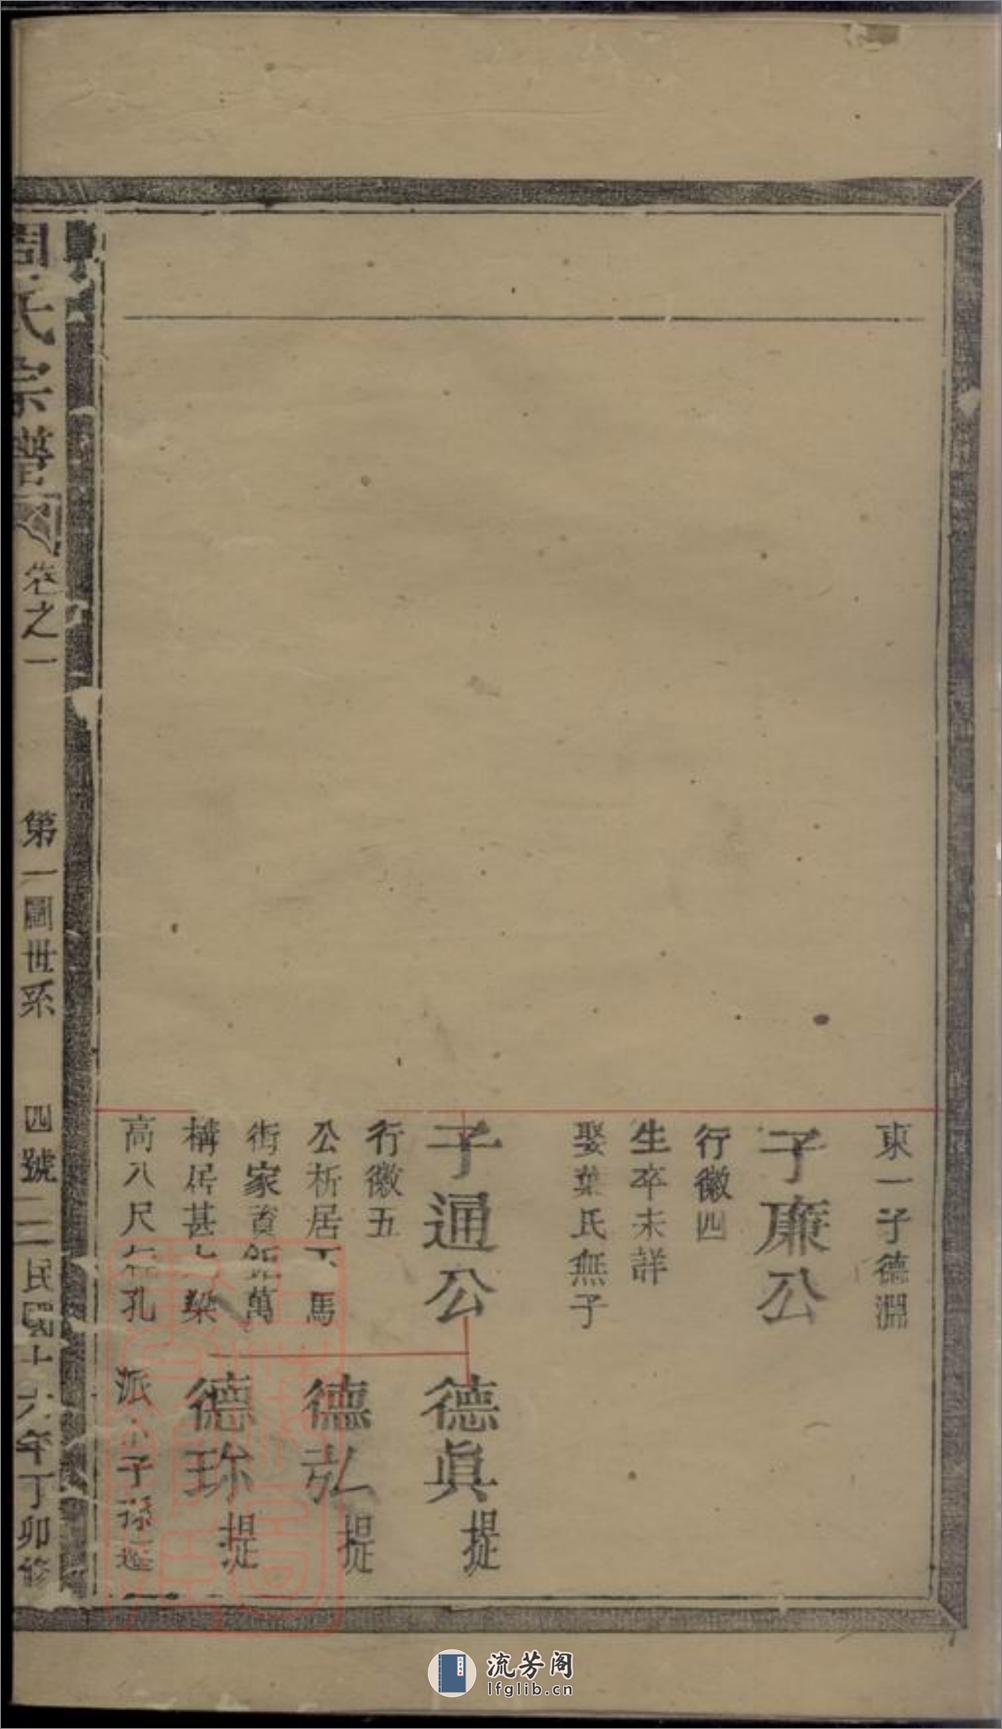 東一子德淵
子廉公
行徽四
生卒未詳
娶葉氏無子
子通公
行徽五
公析居 馬
街家資鉅萬
構居甚 梁
高八尺 孔
德眞 提
德弘 提
德珎 提
派 子孫
周氏宗譜 卷之一 第一圖世系 四號 民國十六年丁卯修
流芳阁
lfglib.cn